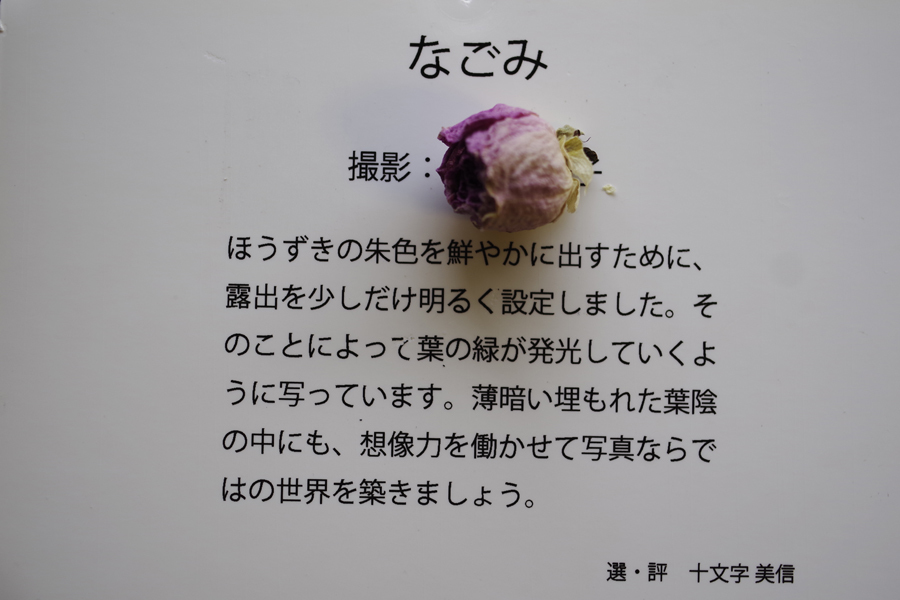 なごみ
撮影：
ほうずきの朱色を鮮やかに出すために、
露出を少しだけ明るく設定しました。そ
のことによって葉の緑が発光していくよ
うに写っています。薄暗い埋もれた葉陰
の中にも、想像力を働かせて写真ならで
はの世界を築きましょう。
選・評　十文字 美信